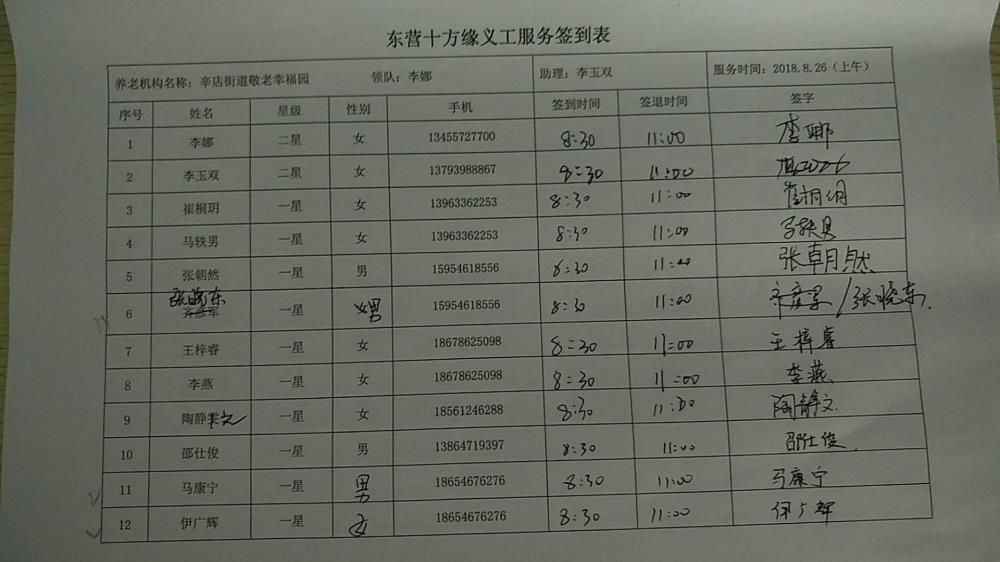 东营十方缘义工服务签到表
养老机构名称：辛店街道敬老幸福园 领队：李娜 助理：李玉双 服务时间：2018.8.26（上午）
序号 姓名 星级 性别 手机 签到时间 签退时间 签字
1 李娜 二星 女 13455727700 8:30 11:00 李娜
2 李玉双 二星 女 13793988867 8:30 11:00
3 崔桐玥 一星 女 13963362253 8:30 11:00 崔桐玥
4 马轶男 一星 女 13963362253 8:30 11:00 马轶男
5 张朝然 一星 男 15954618556 8:30 11:00 张朝然
张晓东
6 齐彦军 一星 女男 15954618556 8:30 11:00 齐彦军/张晓东
7 王梓睿 一星 女 18678625098 8:30 11:00 王梓睿
8 李燕 一星 女 18678625098 8:30 11:00 李燕
9 陶静文 一星 女 18561246288 8:30 11:00 陶静文
10 邵仕俊 一星 男 13864719397 8:30 11:00 邵仕俊
11 马康宁 一星 男 18654676276 8:30 11:00 马康宁
12 伊广辉 一星 女 18654676276 8:30 11:00 伊广辉